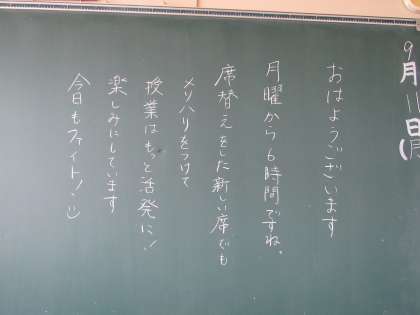 9月11日(月
おはようございます
月曜から6時間ですね。
席替えをした新しい席でも
メリハリをつけて
授業はもっと活発に!
楽しみにしています
今日もファイト!